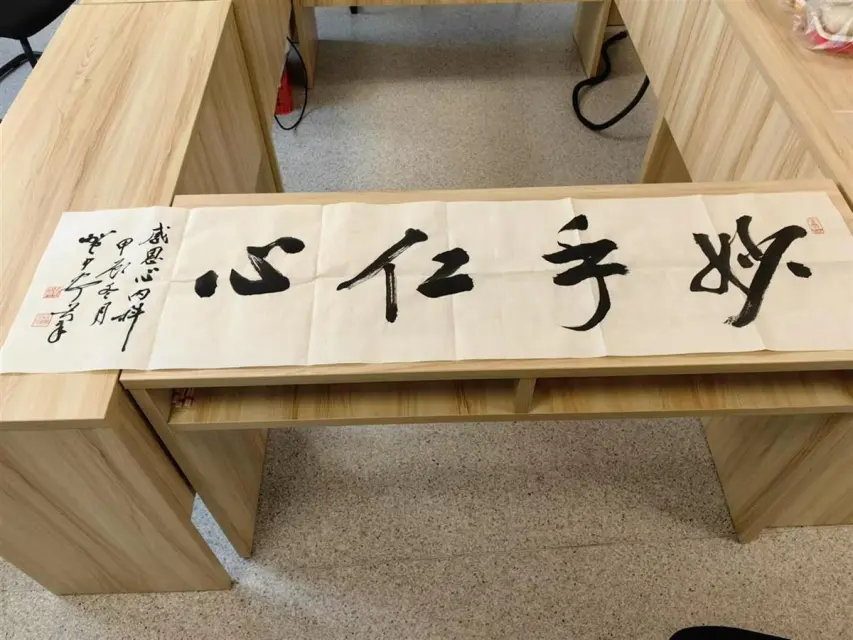 妙手仁心
感恩心内科
甲辰冬月